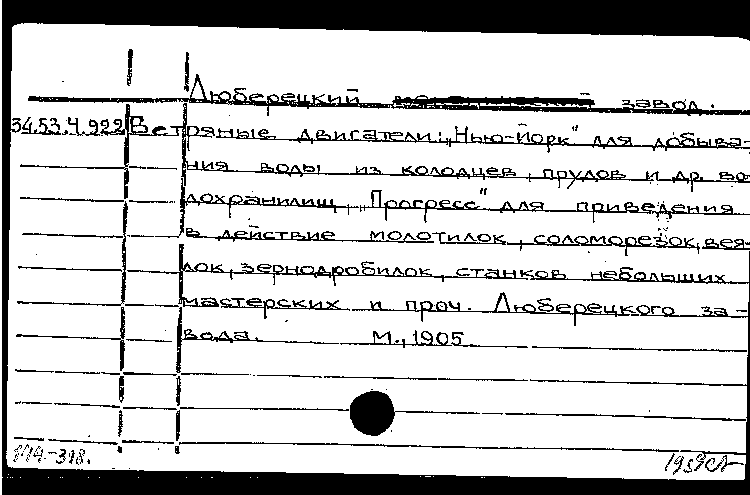 Люберецкий завод.
34.53.4.922 Ветряные двигатели: „Нью-Йорк" для добыва-
ния воды из колодцев, прудов и др. во-
дохранилищ, „Прогресс" для приведения
в действие молотилок, соломорезок, вея-
лок, зернодробилок, станков небольших
мастерских и проч. Люберецкого за-
вода. М., 1905.